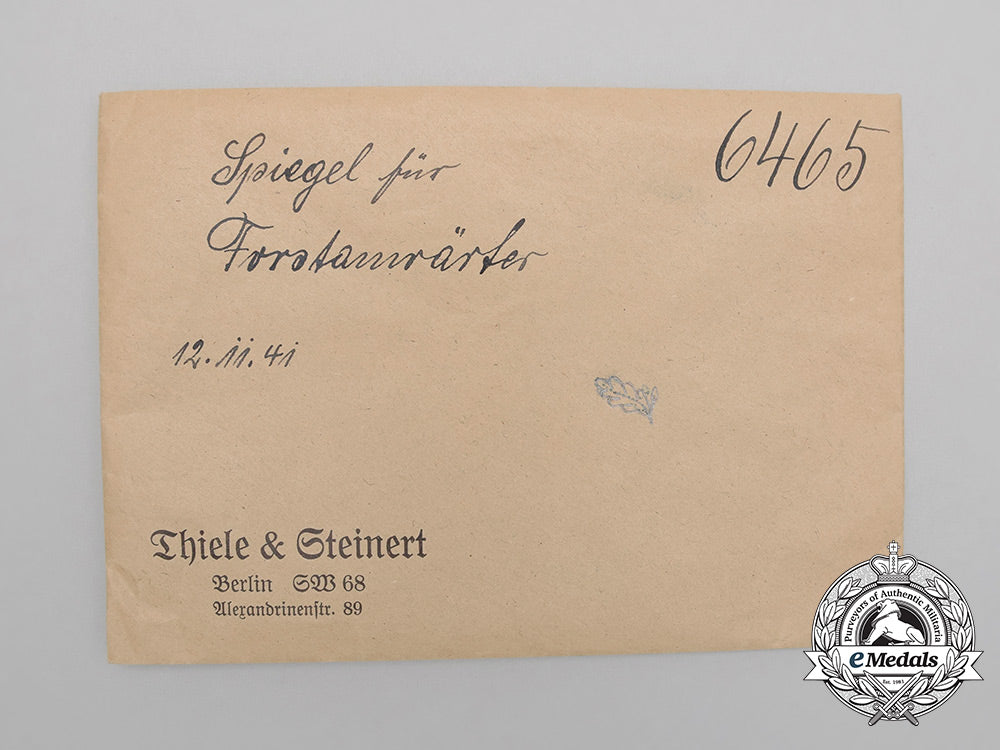 6465
Spiegel für
Forstanwärter
12.11.41
Thiele & Steinert
Berlin SW 68
Alexandrinenstr. 89
Purveyors of Authentic Militaria
eMedals
Est. 1981